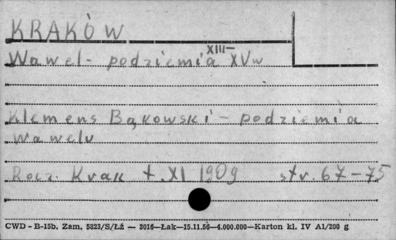 KRAKÓW
Wawel - podziemia XIII-XVw
Klemens Bąkowski - podziemia
Wawelu
Rocz. Krak t. XI 1909 str. 67-75
CWD - B-15b, Zam. 5823/S/Łź — 3016—Łak—15.11.56—4.000.000—Karton kl. IV A1/200 g